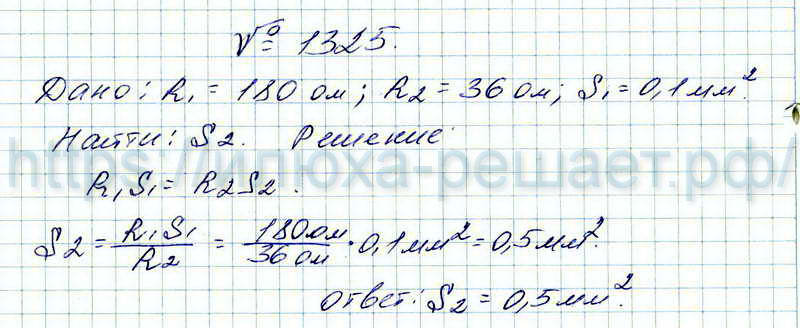 № 1325.
Дано: R₁ = 180 ом; R₂ = 36 ом; S₁ = 0,1 мм².
Найти: S₂. Решение:
https://илюха-решает.рф/
R₁S₁ = R₂S₂.
S₂ = R₁S₁/R₂ = 180 ом/36 ом · 0,1 мм² = 0,5 мм².
Ответ: S₂ = 0,5 мм².